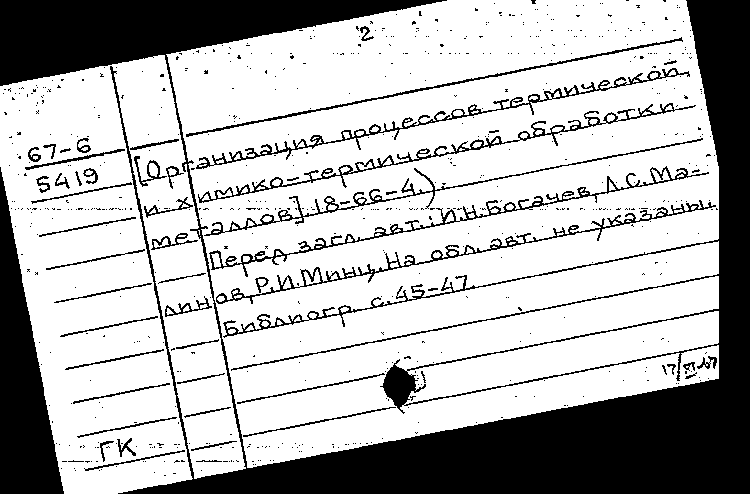 2
67-6
5419
[Организация процессов термической
и химико-термической обработки
металлов]. 18-66-4.).
Перед загл. авт.: И.Н.Богачев, Л.С.Ма-
линов, Р.И.Минц. На обл. авт. не указаны.
Библиогр. с. 45-47.
ГК